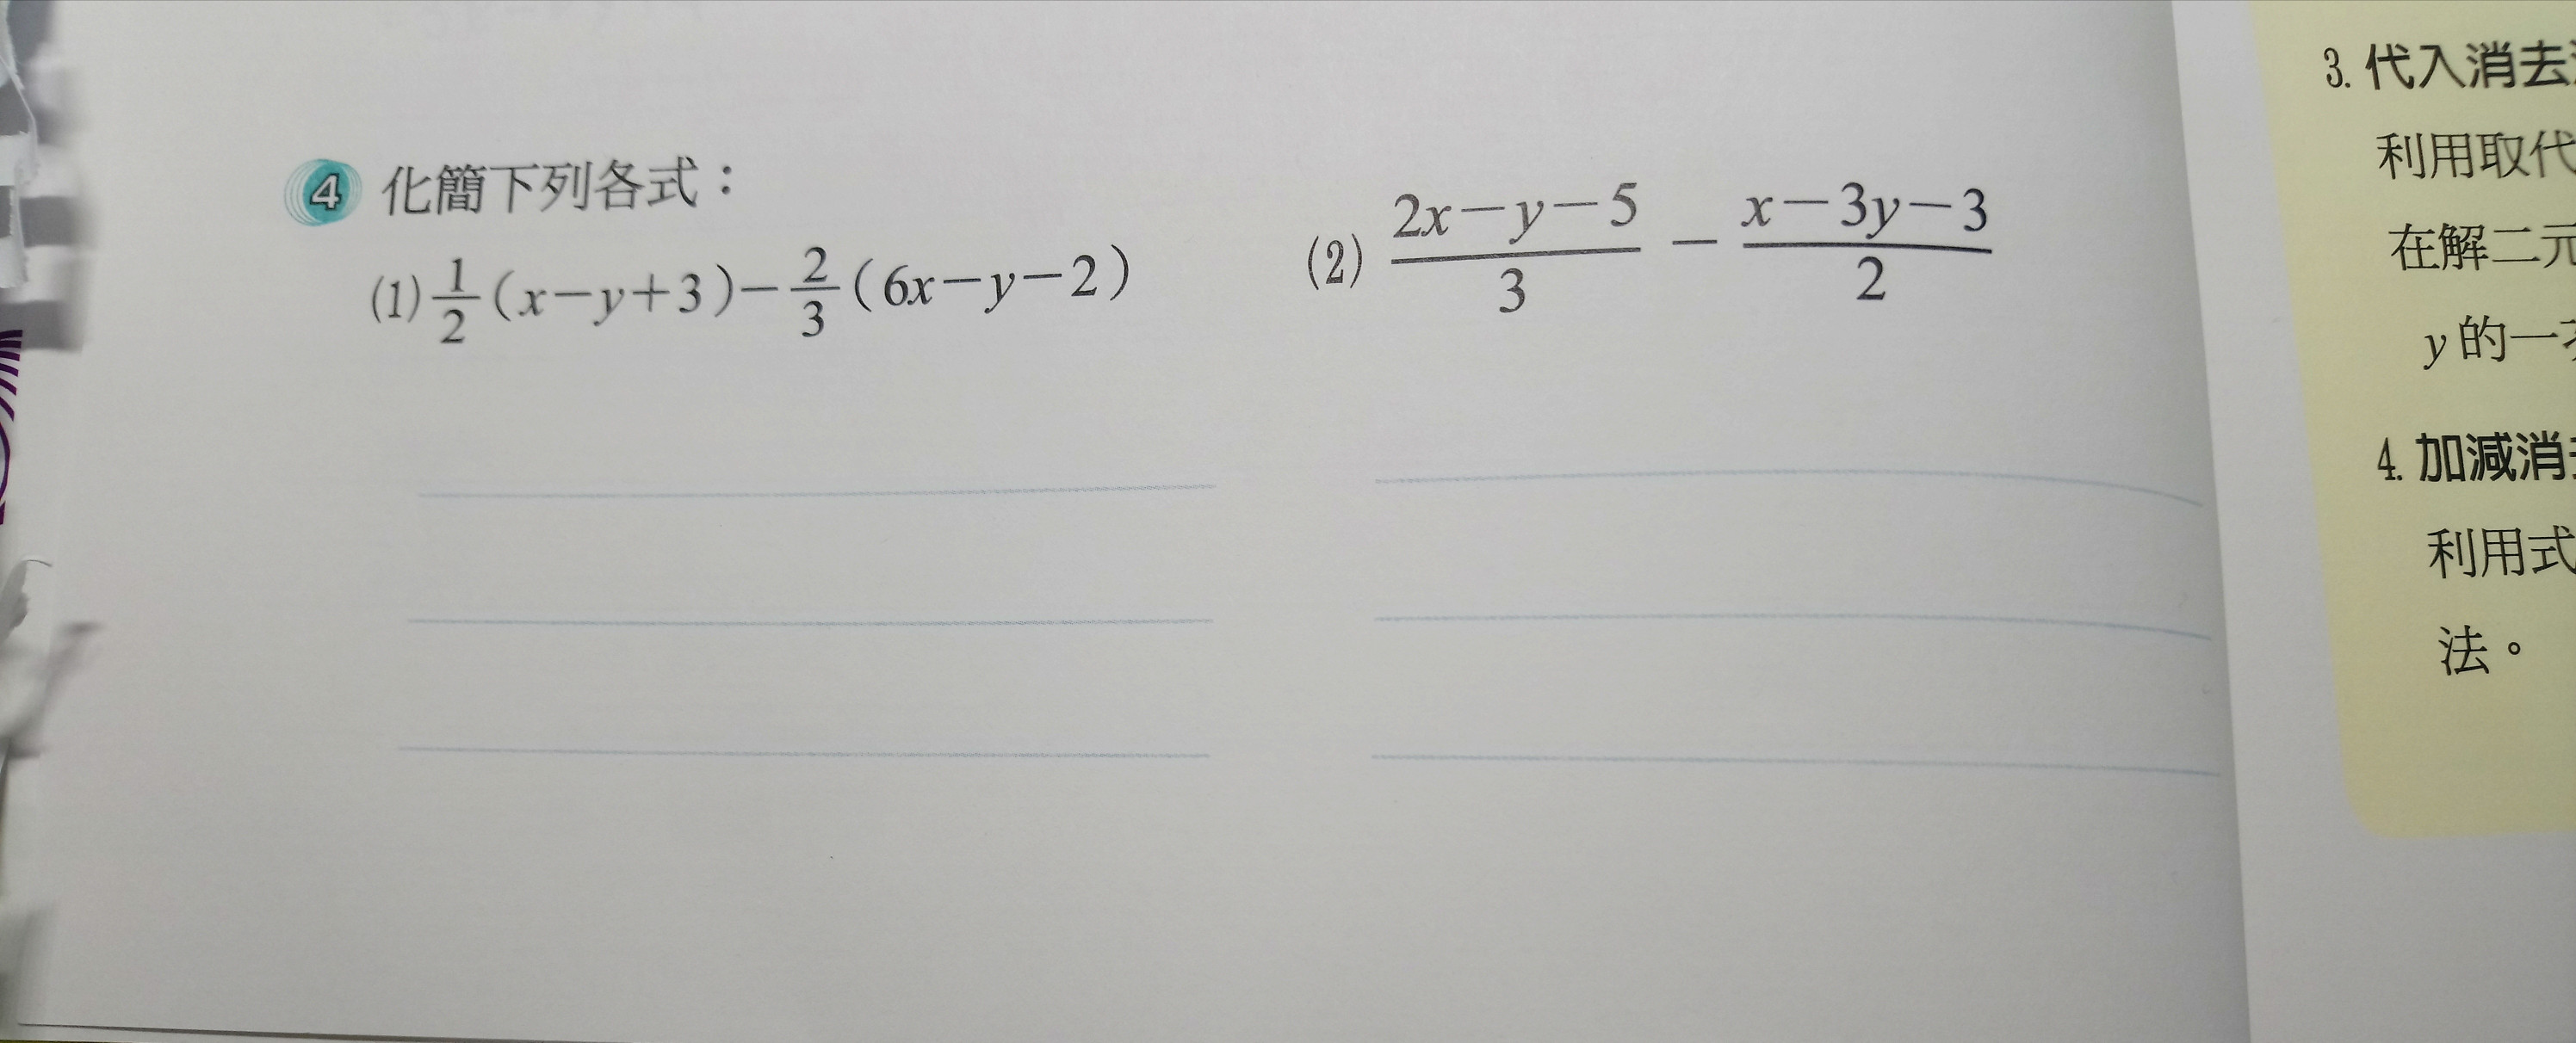 4 化簡下列各式：
(1) 1/2 (x－y＋3)－2/3 (6x－y－2)
(2) (2x－y－5)/3 － (x－3y－3)/2
3. 代入消去
利用取代
在解二元
y 的一
4. 加減消
利用式
法。